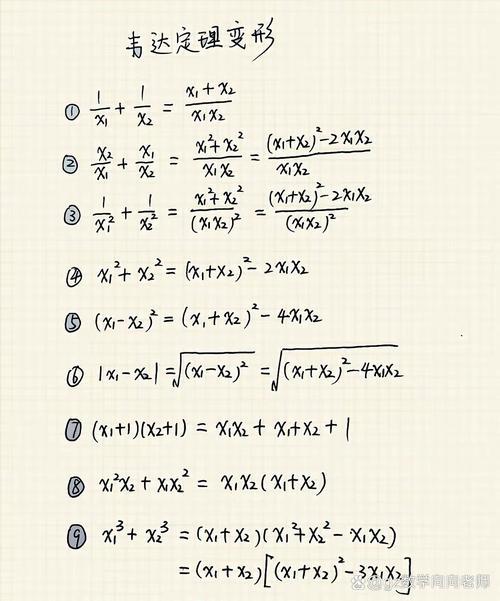 韦达定理变形
① 1/x₁ + 1/x₂ = (x₁+x₂)/(x₁x₂)
② x₂/x₁ + x₁/x₂ = (x₁²+x₂²)/(x₁x₂) = ((x₁+x₂)²-2x₁x₂)/(x₁x₂)
③ 1/x₁² + 1/x₂² = (x₁²+x₂²)/(x₁x₂)² = ((x₁+x₂)²-2x₁x₂)/(x₁x₂)²
④ x₁²+x₂²=(x₁+x₂)²-2x₁x₂
⑤ (x₁-x₂)²=(x₁+x₂)²-4x₁x₂
⑥ |x₁-x₂|=√((x₁-x₂)²)=√((x₁+x₂)²-4x₁x₂)
⑦ (x₁+1)(x₂+1)=x₁x₂+x₁+x₂+1
⑧ x₁²x₂+x₁x₂²=x₁x₂(x₁+x₂)
⑨ x₁³+x₂³=(x₁+x₂)(x₁²+x₂²-x₁x₂)
=(x₁+x₂)[(x₁+x₂)²-3x₁x₂]
数学向向老师